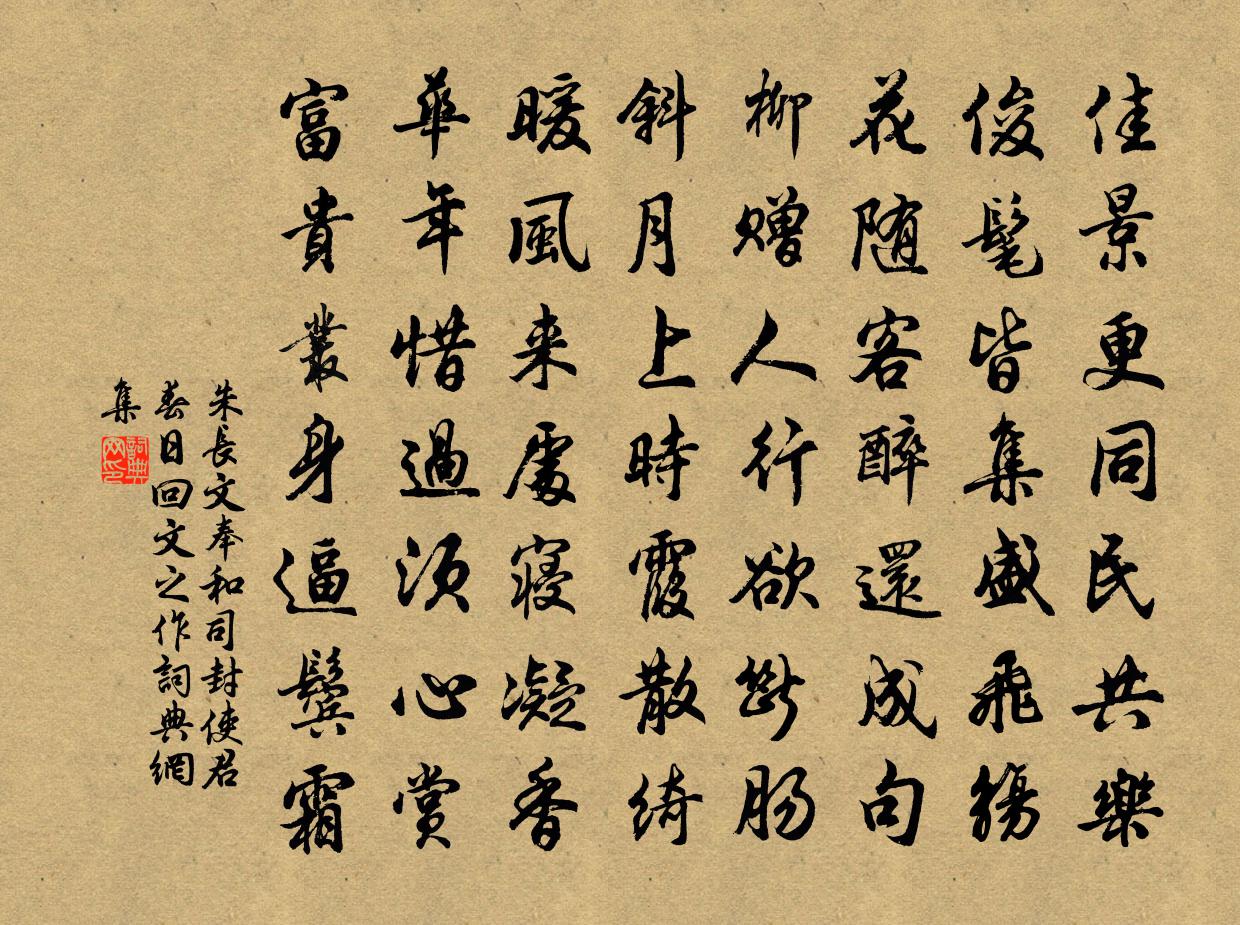 佳景更同民共樂
俊髦皆集盛飛觴
花随客醉還成句
柳赠人行欲斷肠
斜月上時霞散綺
暖風来處寝凝香
華年惜過须心賞
富貴叢身逼鬓霜
朱長文奉和司封使君
春日回文之作詞典網
集
詞典網印